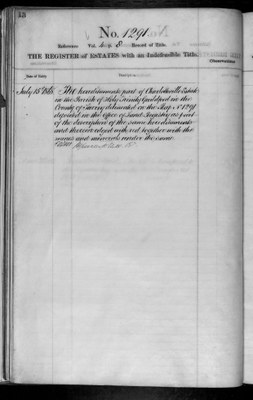 13
No. 1291
Reference Vol. Record of Title.
THE REGISTER of ESTATES with an Indefeasible Title.
Date of Entry
Description
Observations
July 15th 1865 The hereditaments part of Charlotteville Estate
in the Parish of Holy Trinity Guildford in the
County of Surrey delineated in the Map No. 1291
deposited in the Office of Land Registry as part
of the description of the same hereditaments
and thereon edged with red together with the
mines and minerals under the same.